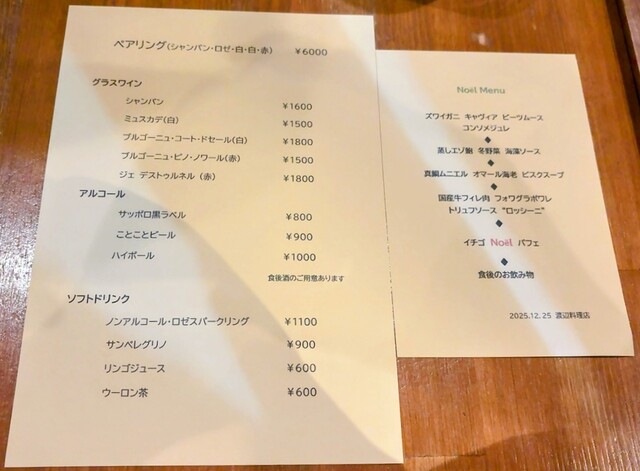 ペアリング(シャンパン・ロゼ・白・白・赤) ¥6000
グラスワイン
シャンパン ¥1600
ミュスカデ(白) ¥1500
ブルゴーニュ・コート・ドセール(白) ¥1800
ブルゴーニュ・ピノ・ノワール(赤) ¥1500
ジェ デストゥルネル (赤) ¥1800
アルコール
サッポロ黒ラベル ¥800
ことことビール ¥900
ハイボール ¥1000
食後酒のご用意あります
ソフトドリンク
ノンアルコール・ロゼスパークリング ¥1100
サンペレグリノ ¥900
リンゴジュース ¥600
ウーロン茶 ¥600
Noël Menu
ズワイガニ キャヴィア ビーツムース
コンソメジュレ
蒸しエゾ鮑 冬野菜 海藻ソース
真鯛ムニエル オマール海老 ビスクスープ
国産牛フィレ肉 フォワグラポワレ
トリュフソース “ロッシーニ”
イチゴ Noël パフェ
食後のお飲み物
2025.12.25 渡辺料理店